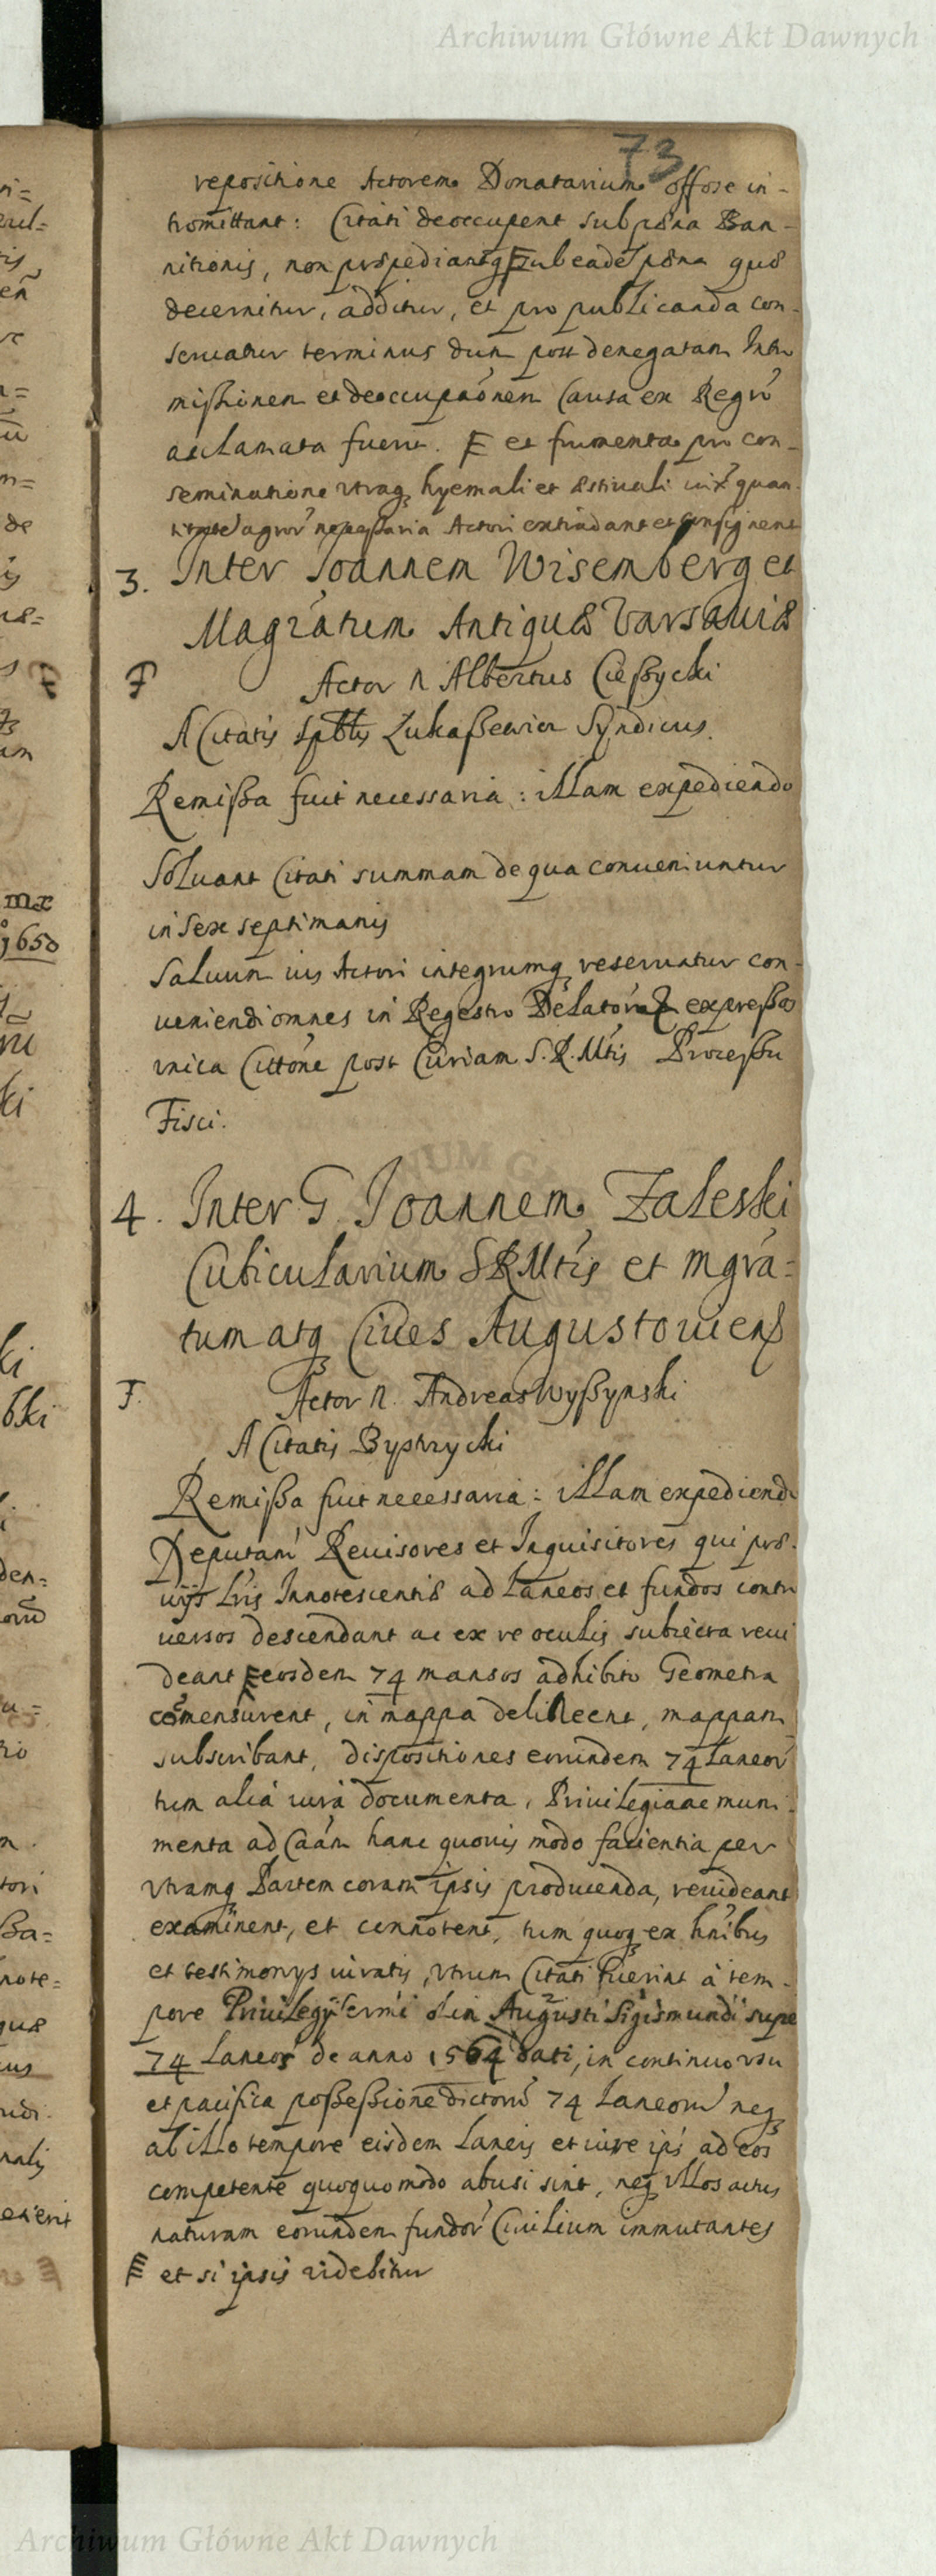 Archiwum Główne Akt Dawnych
73
repositione Actorem Donatarium offose in-
tromittant: Citati deoccupent sub pœna Ban-
nitionis, non præpediantq sub eade pœna quæ
decernitur, additur, et pro publicanda con-
seruatur terminus dum post denegatam Intro
mißionem et deoccupaonem Causa ex Regro
acclamata fuerit. et frumenta pro con-
seminatione vtraq hyemali et æstiuali iuxt quan-
titate agror necessaria Actori extradant et consignent
3. Inter Joannem Wisemberg et
Magratum Antiquæ Varsauiæ
Actor N Albertus Cießycki
A Citatis Spblis Lukaßewicz Syndicus.
Remißa fuit necessaria: illam expediendo
Soluant Citati summam de qua conueniuntur
in sex septimanis
Saluum ius Actori integrumq reseruatur con-
ueniendi omnes in Regestro Delator expreßos
vnica Citõne post Curiam S.R.Mtis Proceßu
Fisci.
4. Inter G Joannem Zaleski
Cubicularium SRMtis et Mgra-
tum atq Ciues Augustouiens
F. Actor N. Andreas Wyßynski
A Citatis Bystrzycki
Remißa fuit necessaria: illam expediendo
Deputam Reuisores et Inquisitores qui præ-
uijs Lris Innotescentiæ ad Laneos et fundos contro
uersos descendant ac ex re oculis subiecta reui
deant eosdem 74 mansos adhibito Geometra
comensurent, in mappa delineent, mappam
subscribant, dispositiones eorundem 74 Laneor
tum alia iura documenta, Priuilegia ac muni-
menta ad Caam hanc quouis modo facientia per
vtramq Partem coram ipsis producenda, reuideant
examinent, et connotent, tum quoq ex
et testimonys iuratis, vtrum Citati fuerint à tem-
pore Priuilegy sermi olim Augusti Sigismundi super
74 Laneos de anno 1564 dati, in continuo vsu
et pacifica poßeßione dictoru 74 Laneoru neq
ab illo tempore eisdem Laneis et iure ipsi ad eos
competente quoquo modo abusi sint, neq vllos actus
naturam eorundem fundor Ciuilium immutantes
et si ipsis videbitur
Archiwum Główne Akt Dawnych